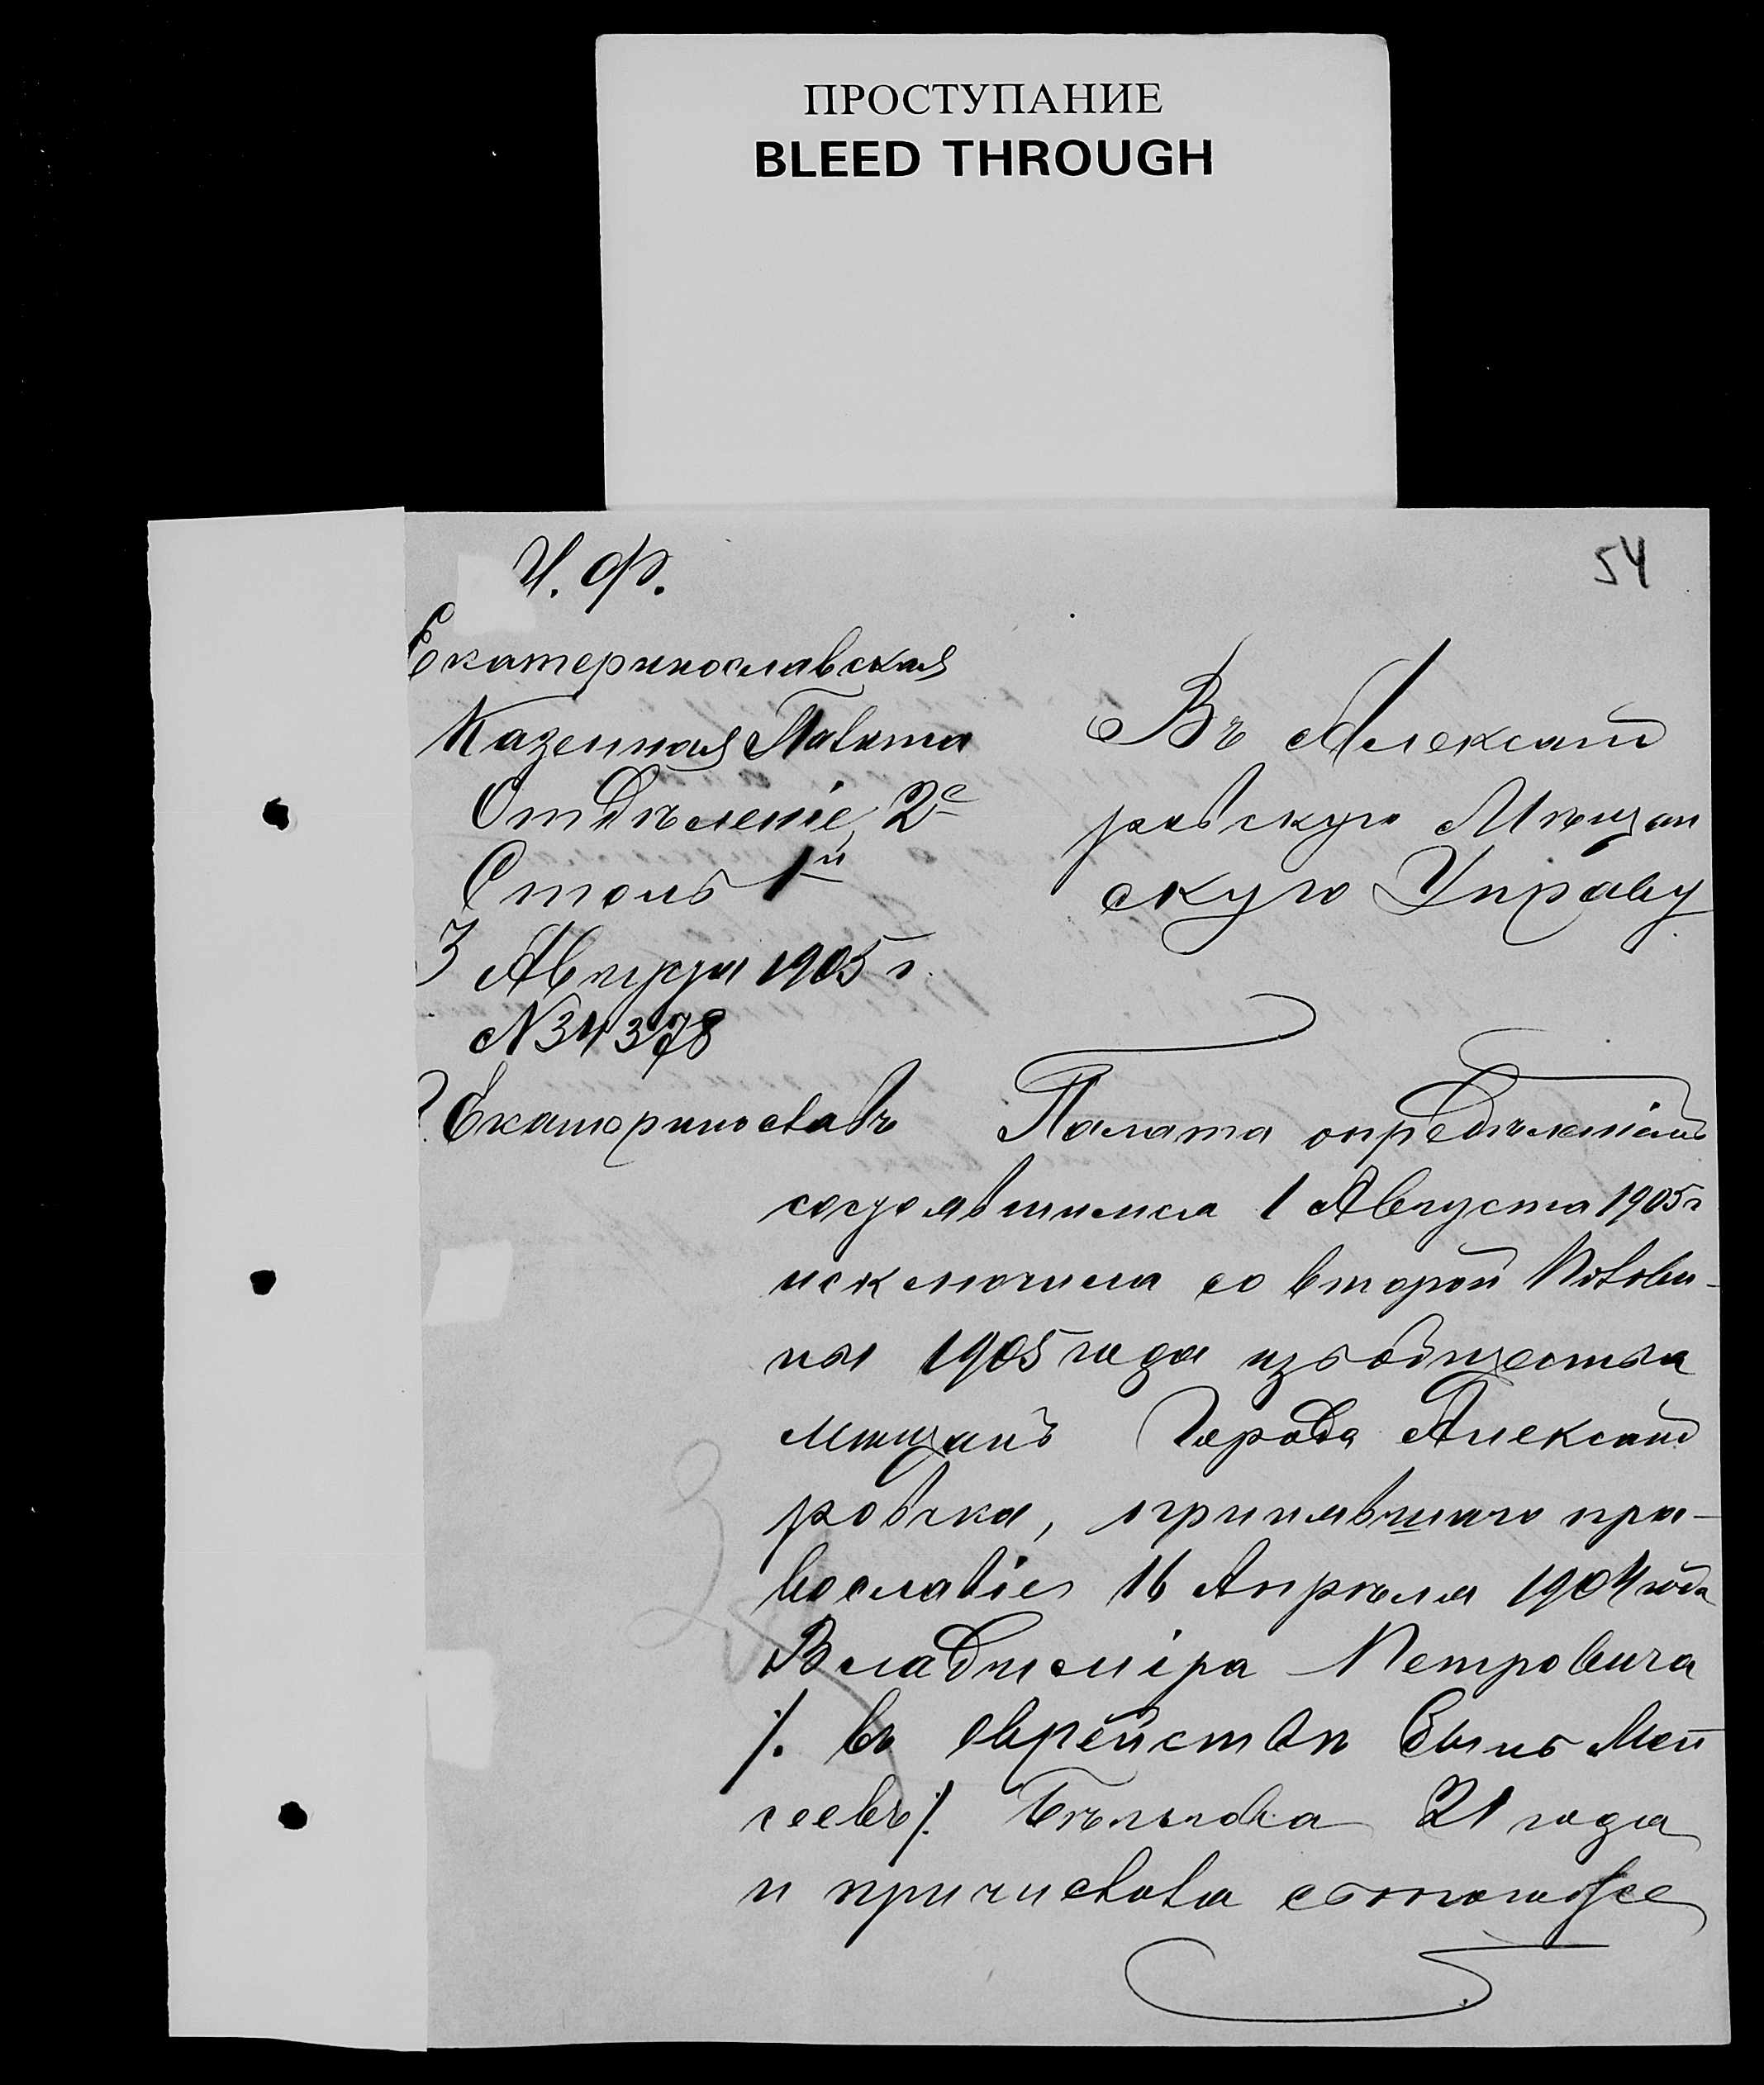 ПРОСТУПАНИЕ
BLEED THROUGH
54
И. Ф.
Екатеринославская
Казенная Палата
Отдѣленіе 2е
Столъ 1й
3 Августа 1905 г.
N 34378
Екатеринославъ
Въ Александ
ровскую Мѣщан
скую Управу
Палата опредѣленіемъ
состоявшимся 1 Августа 1905 г
исключила со второй Полови-
ны 1905 года изъ общества
мѣщанъ Города Александ
ровска, принявшаго пра-
вославіе 16 Апрѣля 1904 года
Владиміра Петровича
/. въ еврействѣ Мой
сеевъ/. 21 года
и причислила съ того же